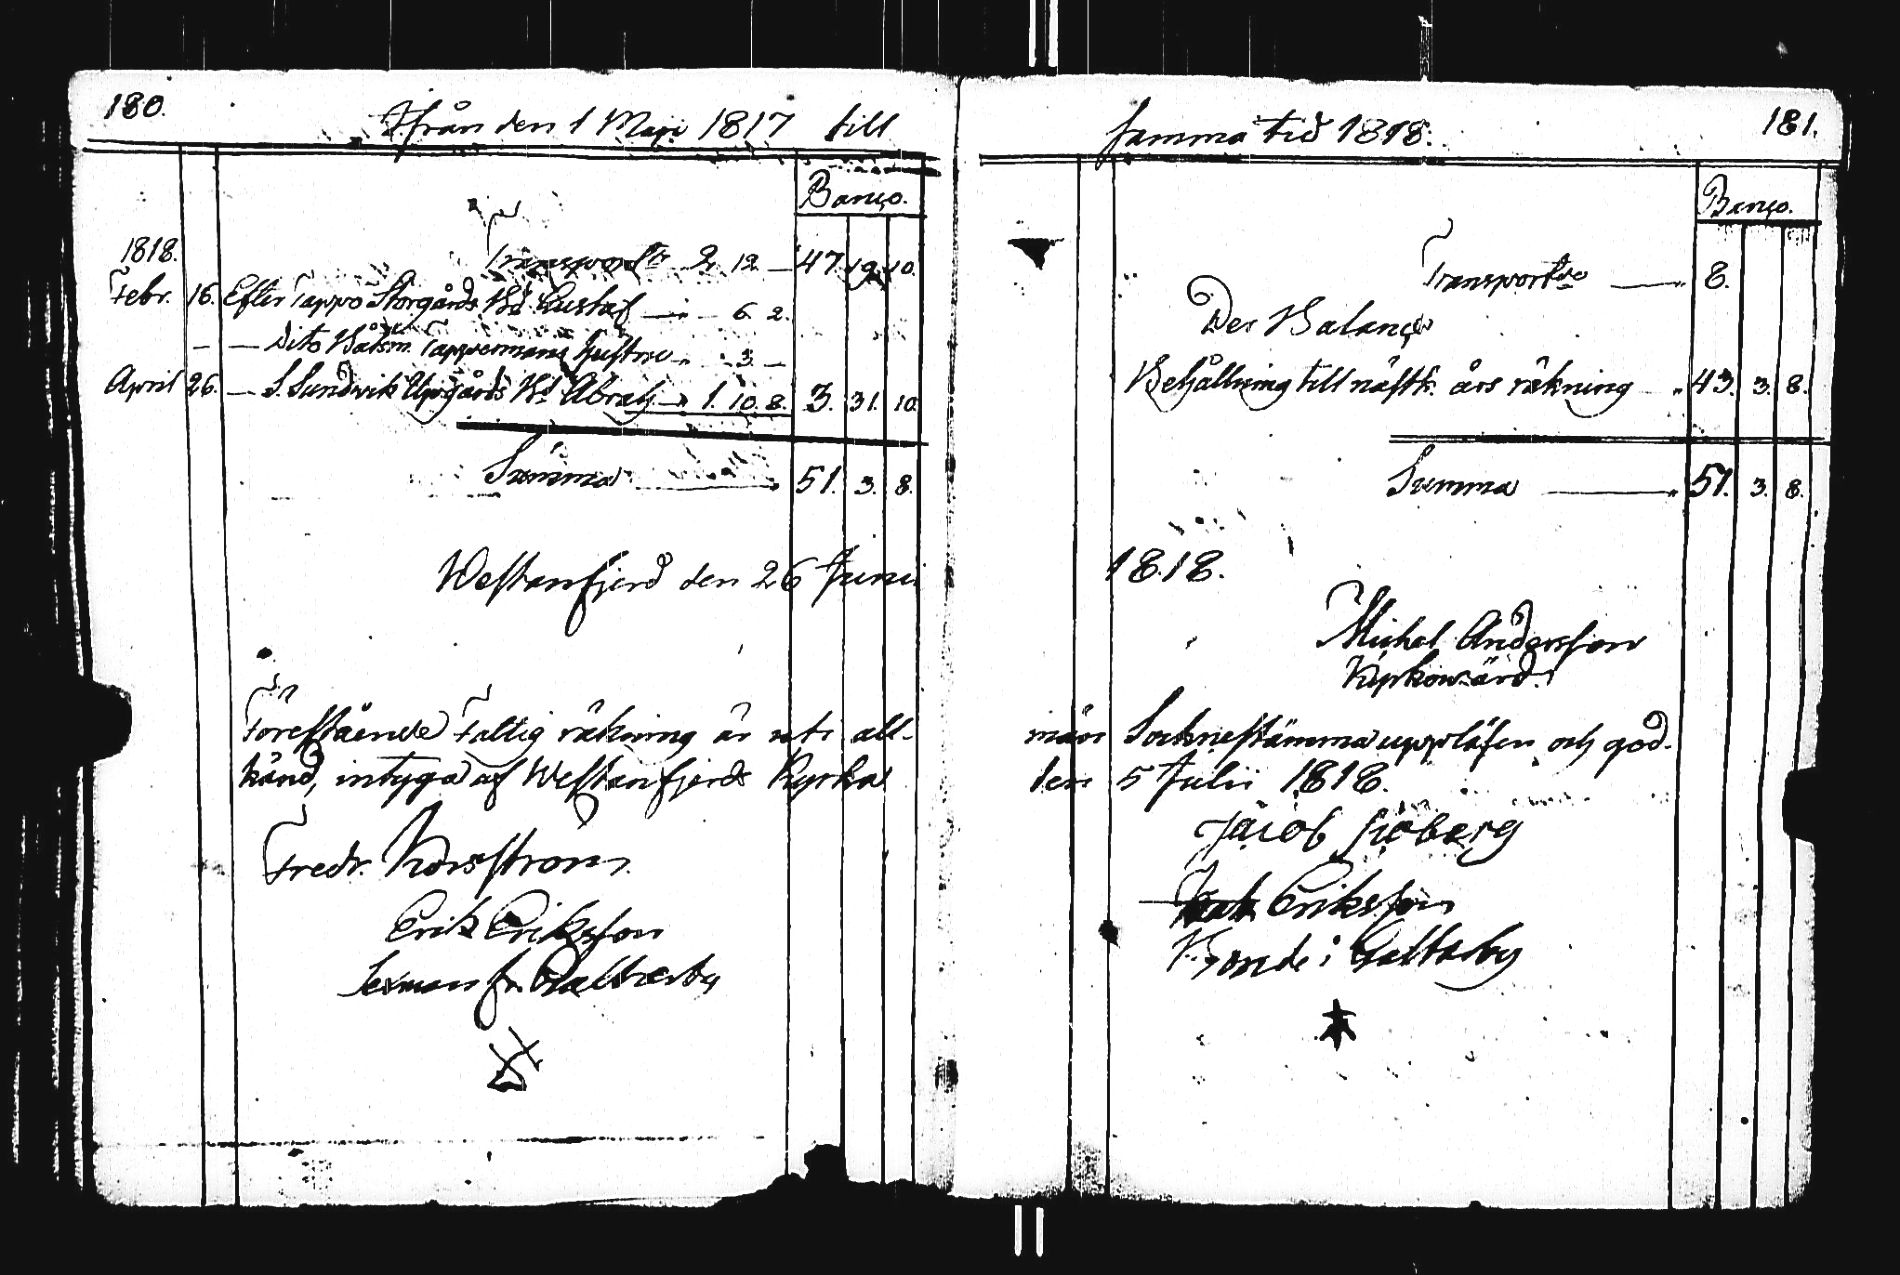 180.
Ifrån den 1 Maji 1817 till
Banco.
1818.
Transport 2. 12. — 47. 19. 10.
Febr. 16. Efter Tappo Storgårds Bd. Gustaf — 6. 2.
— — Dito Båtsm. Tappermans hustru — 3. —
April 26. — S. Sundvik Uppgårds Bd. Abrah. — 1. 10. 8. 3. 31. 10.
Summa — 51. 3. 8.
Westanfjerd den 26 Junii
Förestående Fattig räkning är uti all-
känd, intyga af Westanfjerds Kyrka
Fredr. Norsström
Erik Eriksson
Sexman fr. Galtarby
181.
samma tid 1818.
Banco.
Transport — 8.
Per Balance
Behållning till nästk. års räkning — 43. 3. 8.
Summa — 51. 3. 8.
1818.
Michel Andersson
Kyrkowärd.
män Socknestämma uppläsen och god-
den 5 Julii 1818.
Jacob sjöberg
Eriksson
Bonde i Galtarby